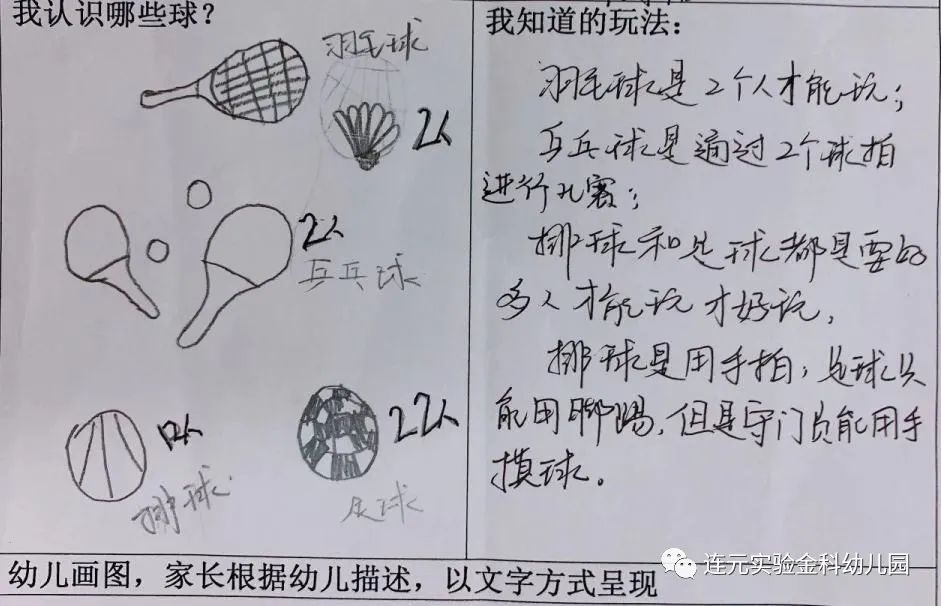 我认识哪些球？
羽毛球
2人
2人
乒乓球
12人
22人
排球
足球
我知道的玩法：
羽毛球是2个人才能玩；
乒乓球是通过2个球拍
进行比赛；
排球和足球都是要好
多人才能玩才好玩，
排球是用手拍，足球只
能用脚踢，但是守门员能用手
摸球。
幼儿画图，家长根据幼儿描述，以文字方式呈现
连元实验金科幼儿园